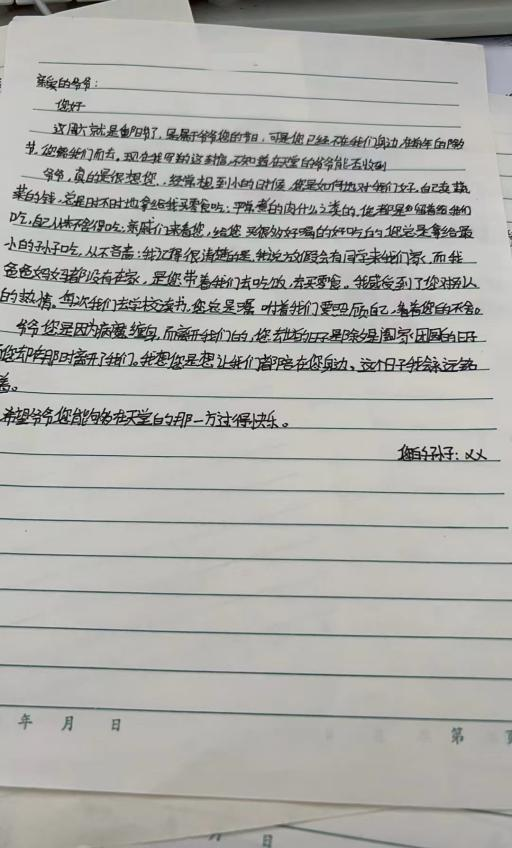 亲爱的爷爷：
您好
这周六就是重阳节了，是属于爷爷您的节日，可是您已经不在我们身边，在每年的
节，您离我们而去，现在我写的这封信不知道在天堂的爷爷能否收到
爷爷，真的是很想您，经常想到小的时候，您是如何地对我们好，自己卖蔬
菜的钱，总是时不时地拿给我买零食吃；平常煮的肉什么之类的，您都是留着给我们
吃，自己从来不舍得吃；亲戚们来看您，给您买很多好喝的好吃的，您总是拿给最
小的孙子吃，从不吝啬；我记得很清楚的是，我说次假会有同学来我们家，而我
爸爸妈妈都没有在家，是您带着我们去吃饭，去买零食。我感受到了您对别人
的热情。每次我们去学校读书，您总是嘱咐着我们要照顾自己，有着您的不舍。
爷爷您是因为病魔缠身，而离开我们的，您去世的日子是除夕是阖家团圆的日子
您却在那时离开了我们。我想您是想让我们都陪在您身边、这个日子我会永远铭
希望爷爷您能够在天堂的那一方过得快乐。
您的孙子：XX
年 月 日
第 页
月 日